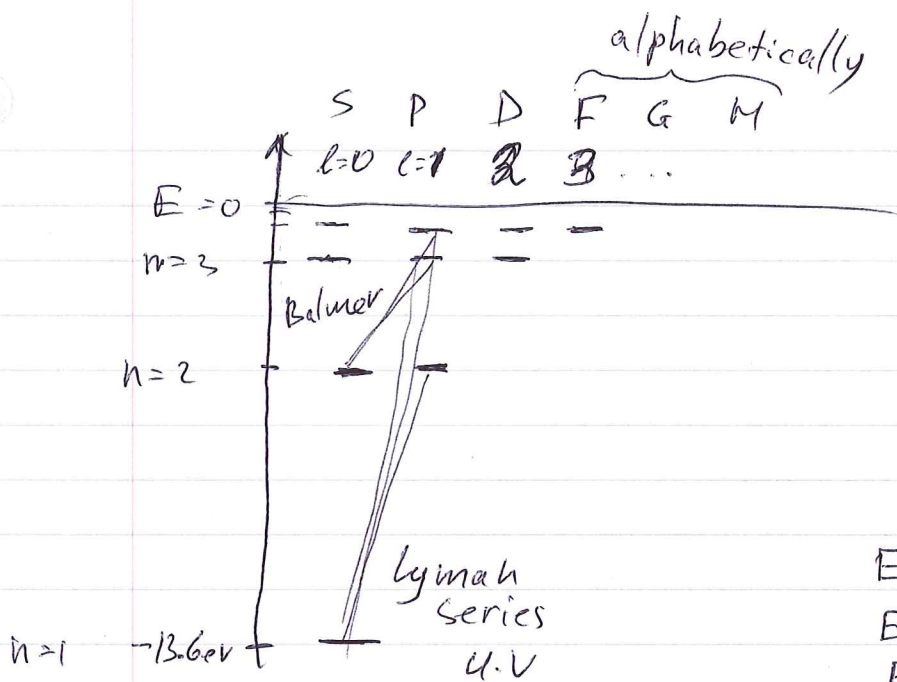 alphabetically
S P D F G H
l=0 l=1 2 3 ...
E=0
n=3
Balmer
n=2
Lyman
series
n=1 -13.6ev U.V
E
E